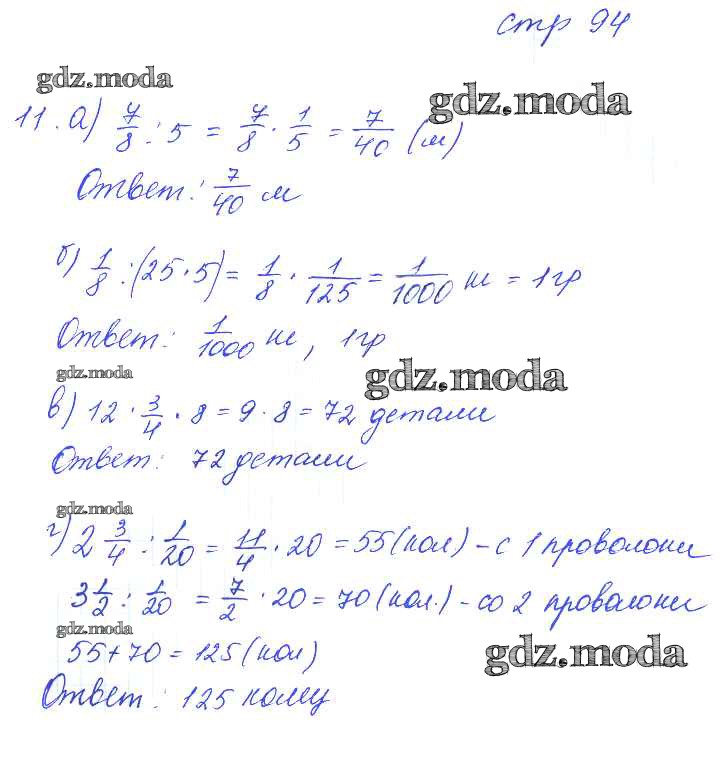 стр 94
gdz.moda
gdz.moda
11. а) 7/8 : 5 = 7/8 · 1/5 = 7/40 (м)
Ответ: 7/40 м
б) 1/8 : (25 · 5) = 1/8 · 1/125 = 1/1000 кг = 1 гр
Ответ: 1/1000 кг, 1 гр
gdz.moda
gdz.moda
в) 12 · 3/4 · 8 = 9 · 8 = 72 детали
Ответ: 72 детали
gdz.moda
г) 2 3/4 : 1/20 = 11/4 · 20 = 55 (кол) - с 1 проволоки
3 1/2 : 1/20 = 7/2 · 20 = 70 (кол.) - со 2 проволоки
gdz.moda
55 + 70 = 125 (кол)
gdz.moda
Ответ: 125 колец